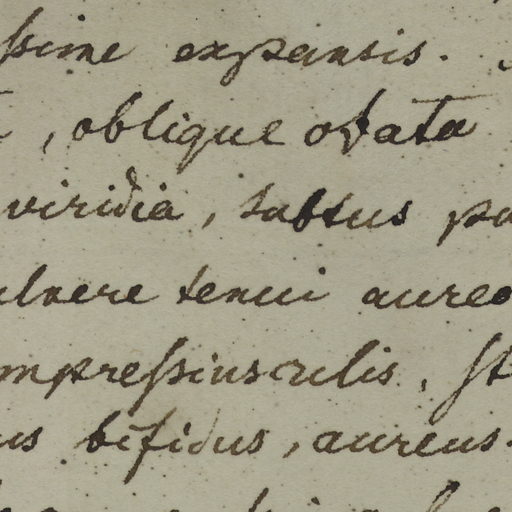 ſsime expansis.
, oblique obata
viridia, subtus pa
ulvere tenui aureo
mpreſsiusculis, St
us bifidus, aureus.